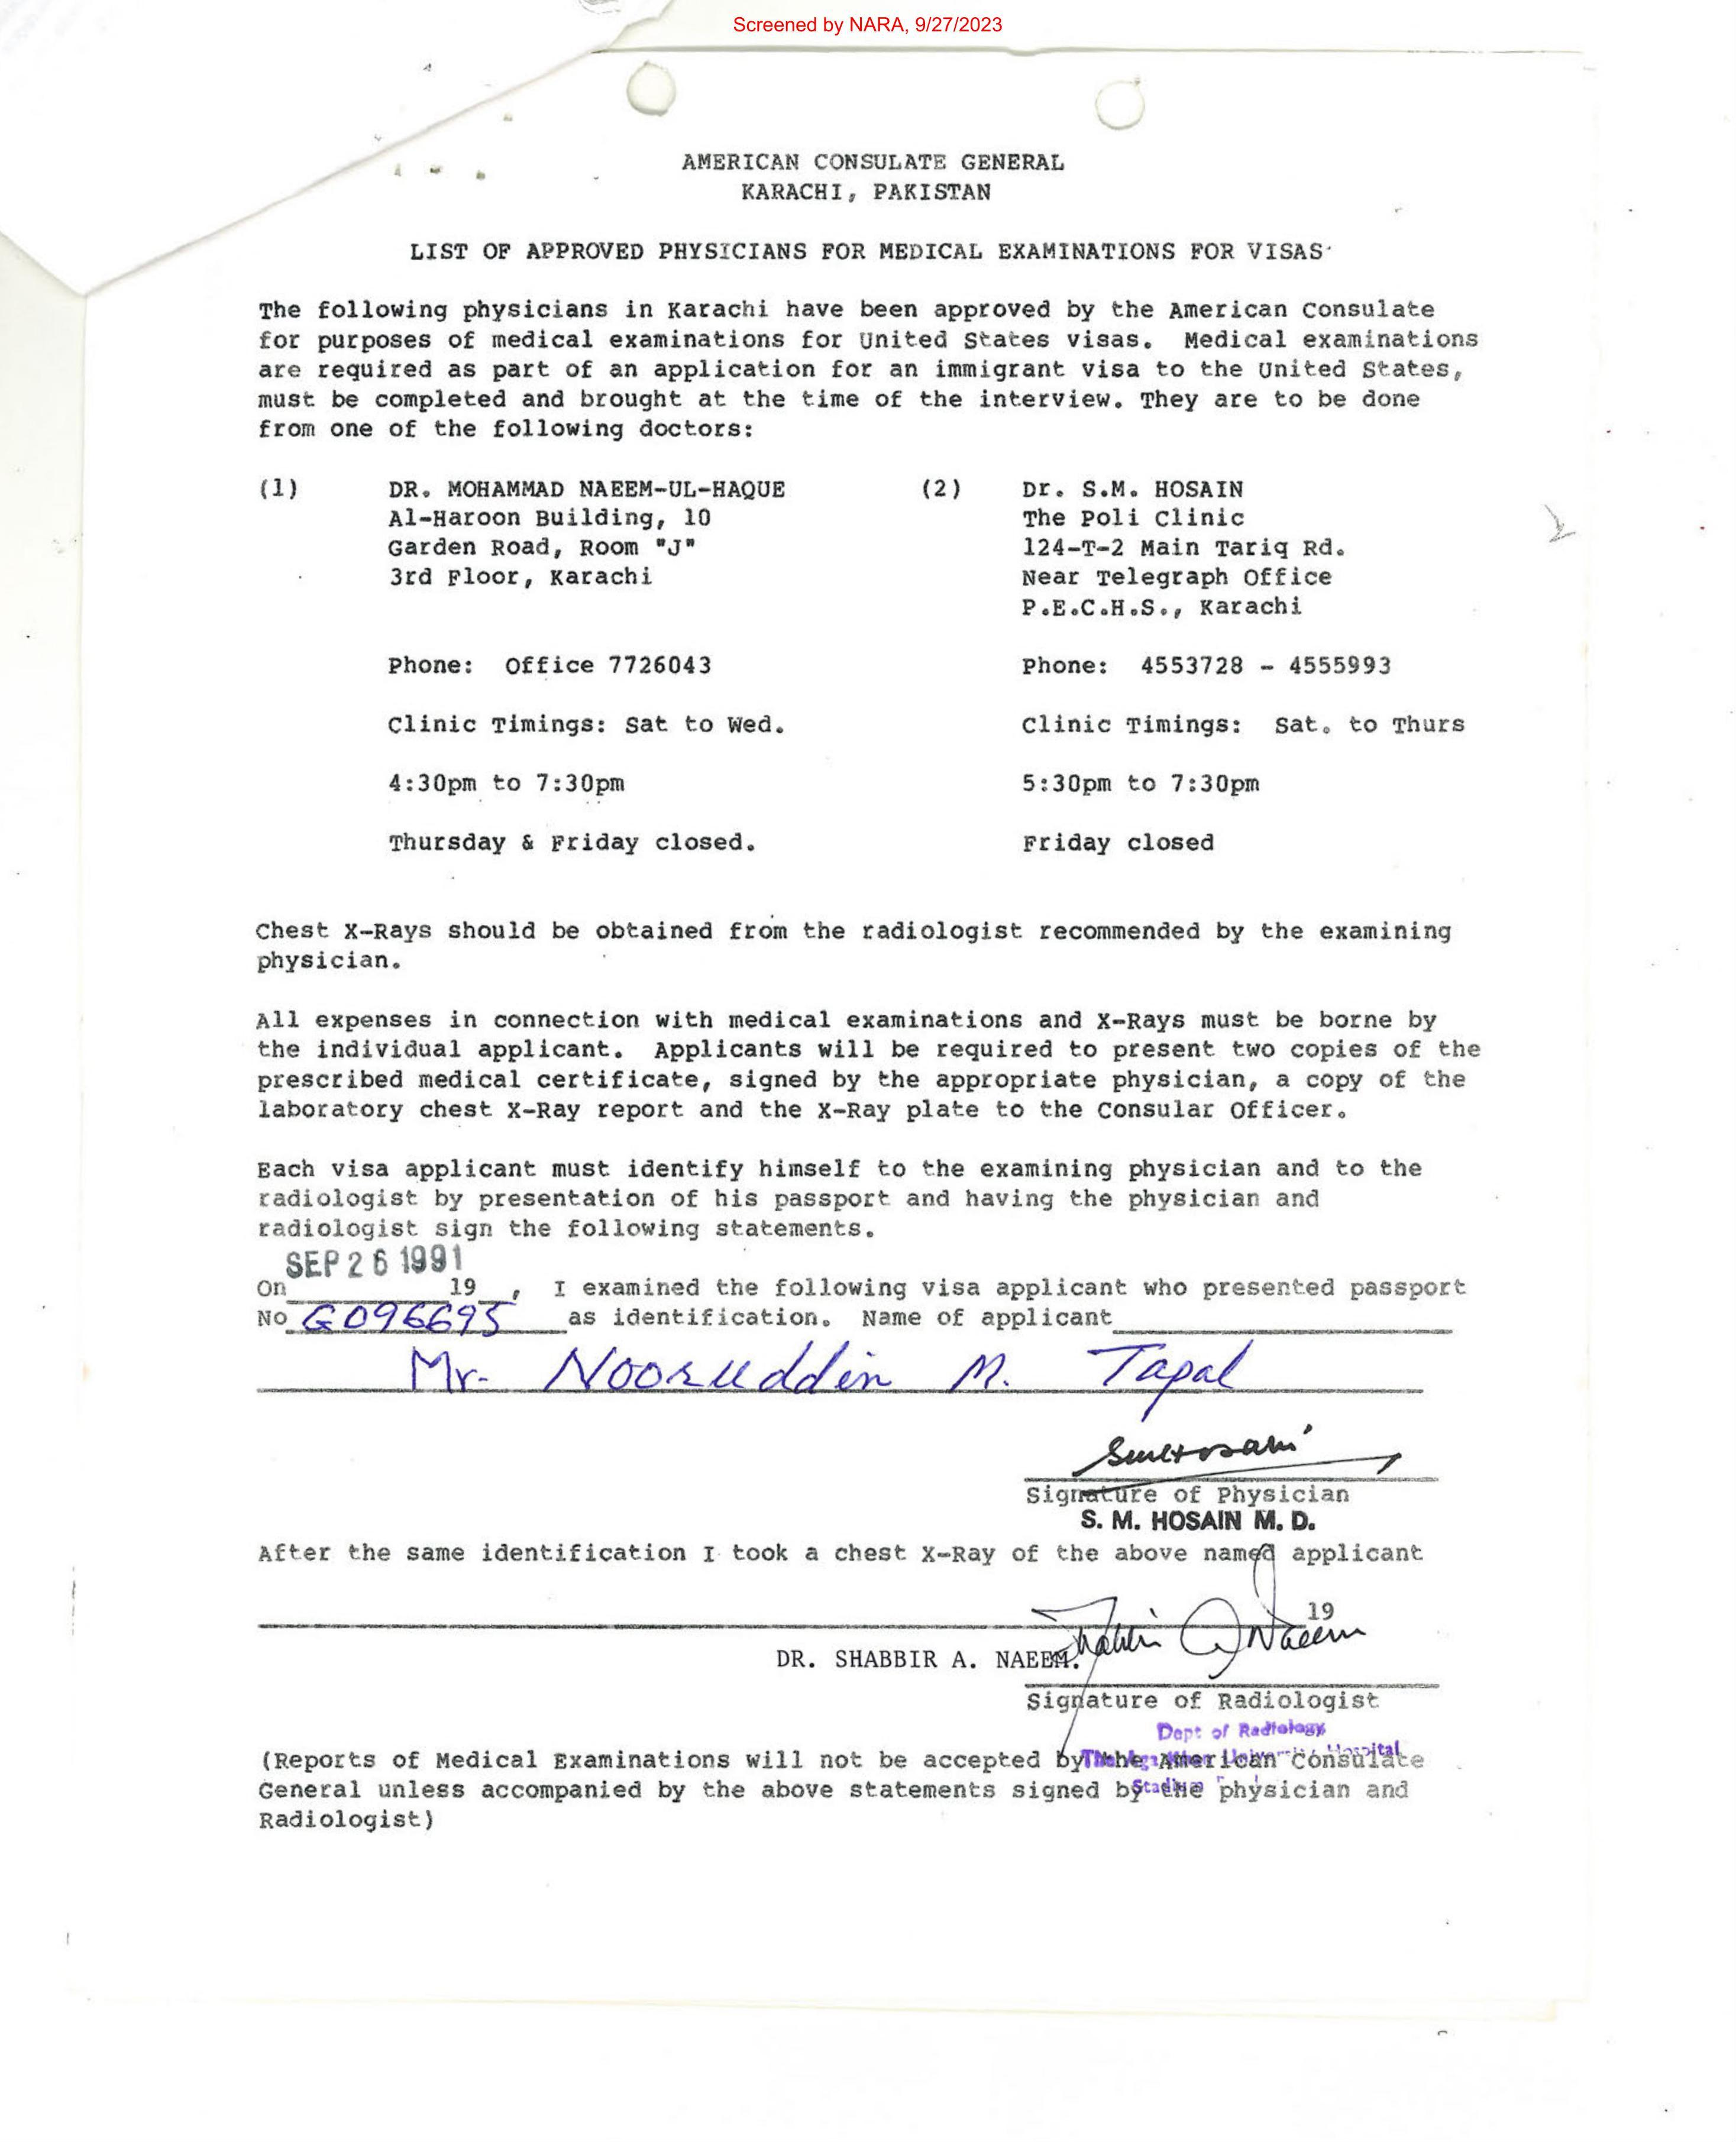 Screened by NARA, 9/27/2023
AMERICAN CONSULATE GENERAL
KARACHI, PAKISTAN
LIST OF APPROVED PHYSICIANS FOR MEDICAL EXAMINATIONS FOR VISAS
The following physicians in Karachi have been approved by the American Consulate
for purposes of medical examinations for United States visas. Medical examinations
are required as part of an application for an immigrant visa to the United States,
must be completed and brought at the time of the interview. They are to be done
from one of the following doctors:
(1) DR. MOHAMMAD NAEEM-UL-HAQUE
Al-Haroon Building, 10
Garden Road, Room "J"
3rd Floor, Karachi
Phone: Office 7726043
Clinic Timings: Sat to Wed.
4:30pm to 7:30pm
Thursday & Friday closed.
(2) Dr. S.M. HOSAIN
The Poli Clinic
124-T-2 Main Tariq Rd.
Near Telegraph Office
P.E.C.H.S., Karachi
Phone: 4553728 - 4555993
Clinic Timings: Sat. to Thurs
5:30pm to 7:30pm
Friday closed
Chest X-Rays should be obtained from the radiologist recommended by the examining
physician.
All expenses in connection with medical examinations and X-Rays must be borne by
the individual applicant. Applicants will be required to present two copies of the
prescribed medical certificate, signed by the appropriate physician, a copy of the
laboratory chest X-Ray report and the X-Ray plate to the Consular Officer.
Each visa applicant must identify himself to the examining physician and to the
radiologist by presentation of his passport and having the physician and
radiologist sign the following statements.
SEP 26 1991
On 19 , I examined the following visa applicant who presented passport
No G096695 as identification. Name of applicant
Mr. Nooruddin M. Tapal
Signature of Physician
S. M. HOSAIN M. D.
After the same identification I took a chest X-Ray of the above named applicant
19
DR. SHABBIR A. NAEEM.
Shabbir A Naeem
Signature of Radiologist
Dept of Radiology
(Reports of Medical Examinations will not be accepted by the American Consulate
Hospital
General unless accompanied by the above statements signed by the physician and
Radiologist)